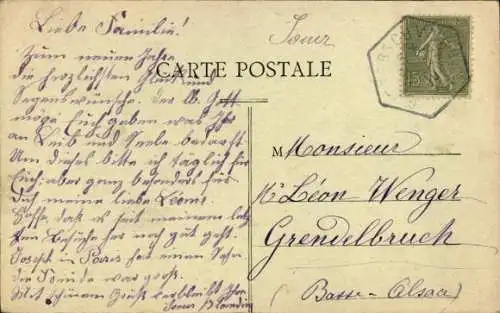 Liebe Familie!
Zum neuen Jahre
die herzlichsten Glück und
Segenswünsche. Der lb. Gott
möge Euch geben was Ihr
an Leib und Seele bedürft
Um dieses bitte ich täglich für
Euch; aber ganz besonders für
Dich meine liebe Léonie.
Hoffe, daß es seit meinem letz
ten Besuche her noch gut geht.
Joseph in Paris hat einen Sohn
die Freude war groß.
Mit schönem Gruß verbleibt Ihre
Soeur
CARTE POSTALE
15
M Monsieur
Mr Léon Wenger
Grendelbruch
(Basse-Alsace)